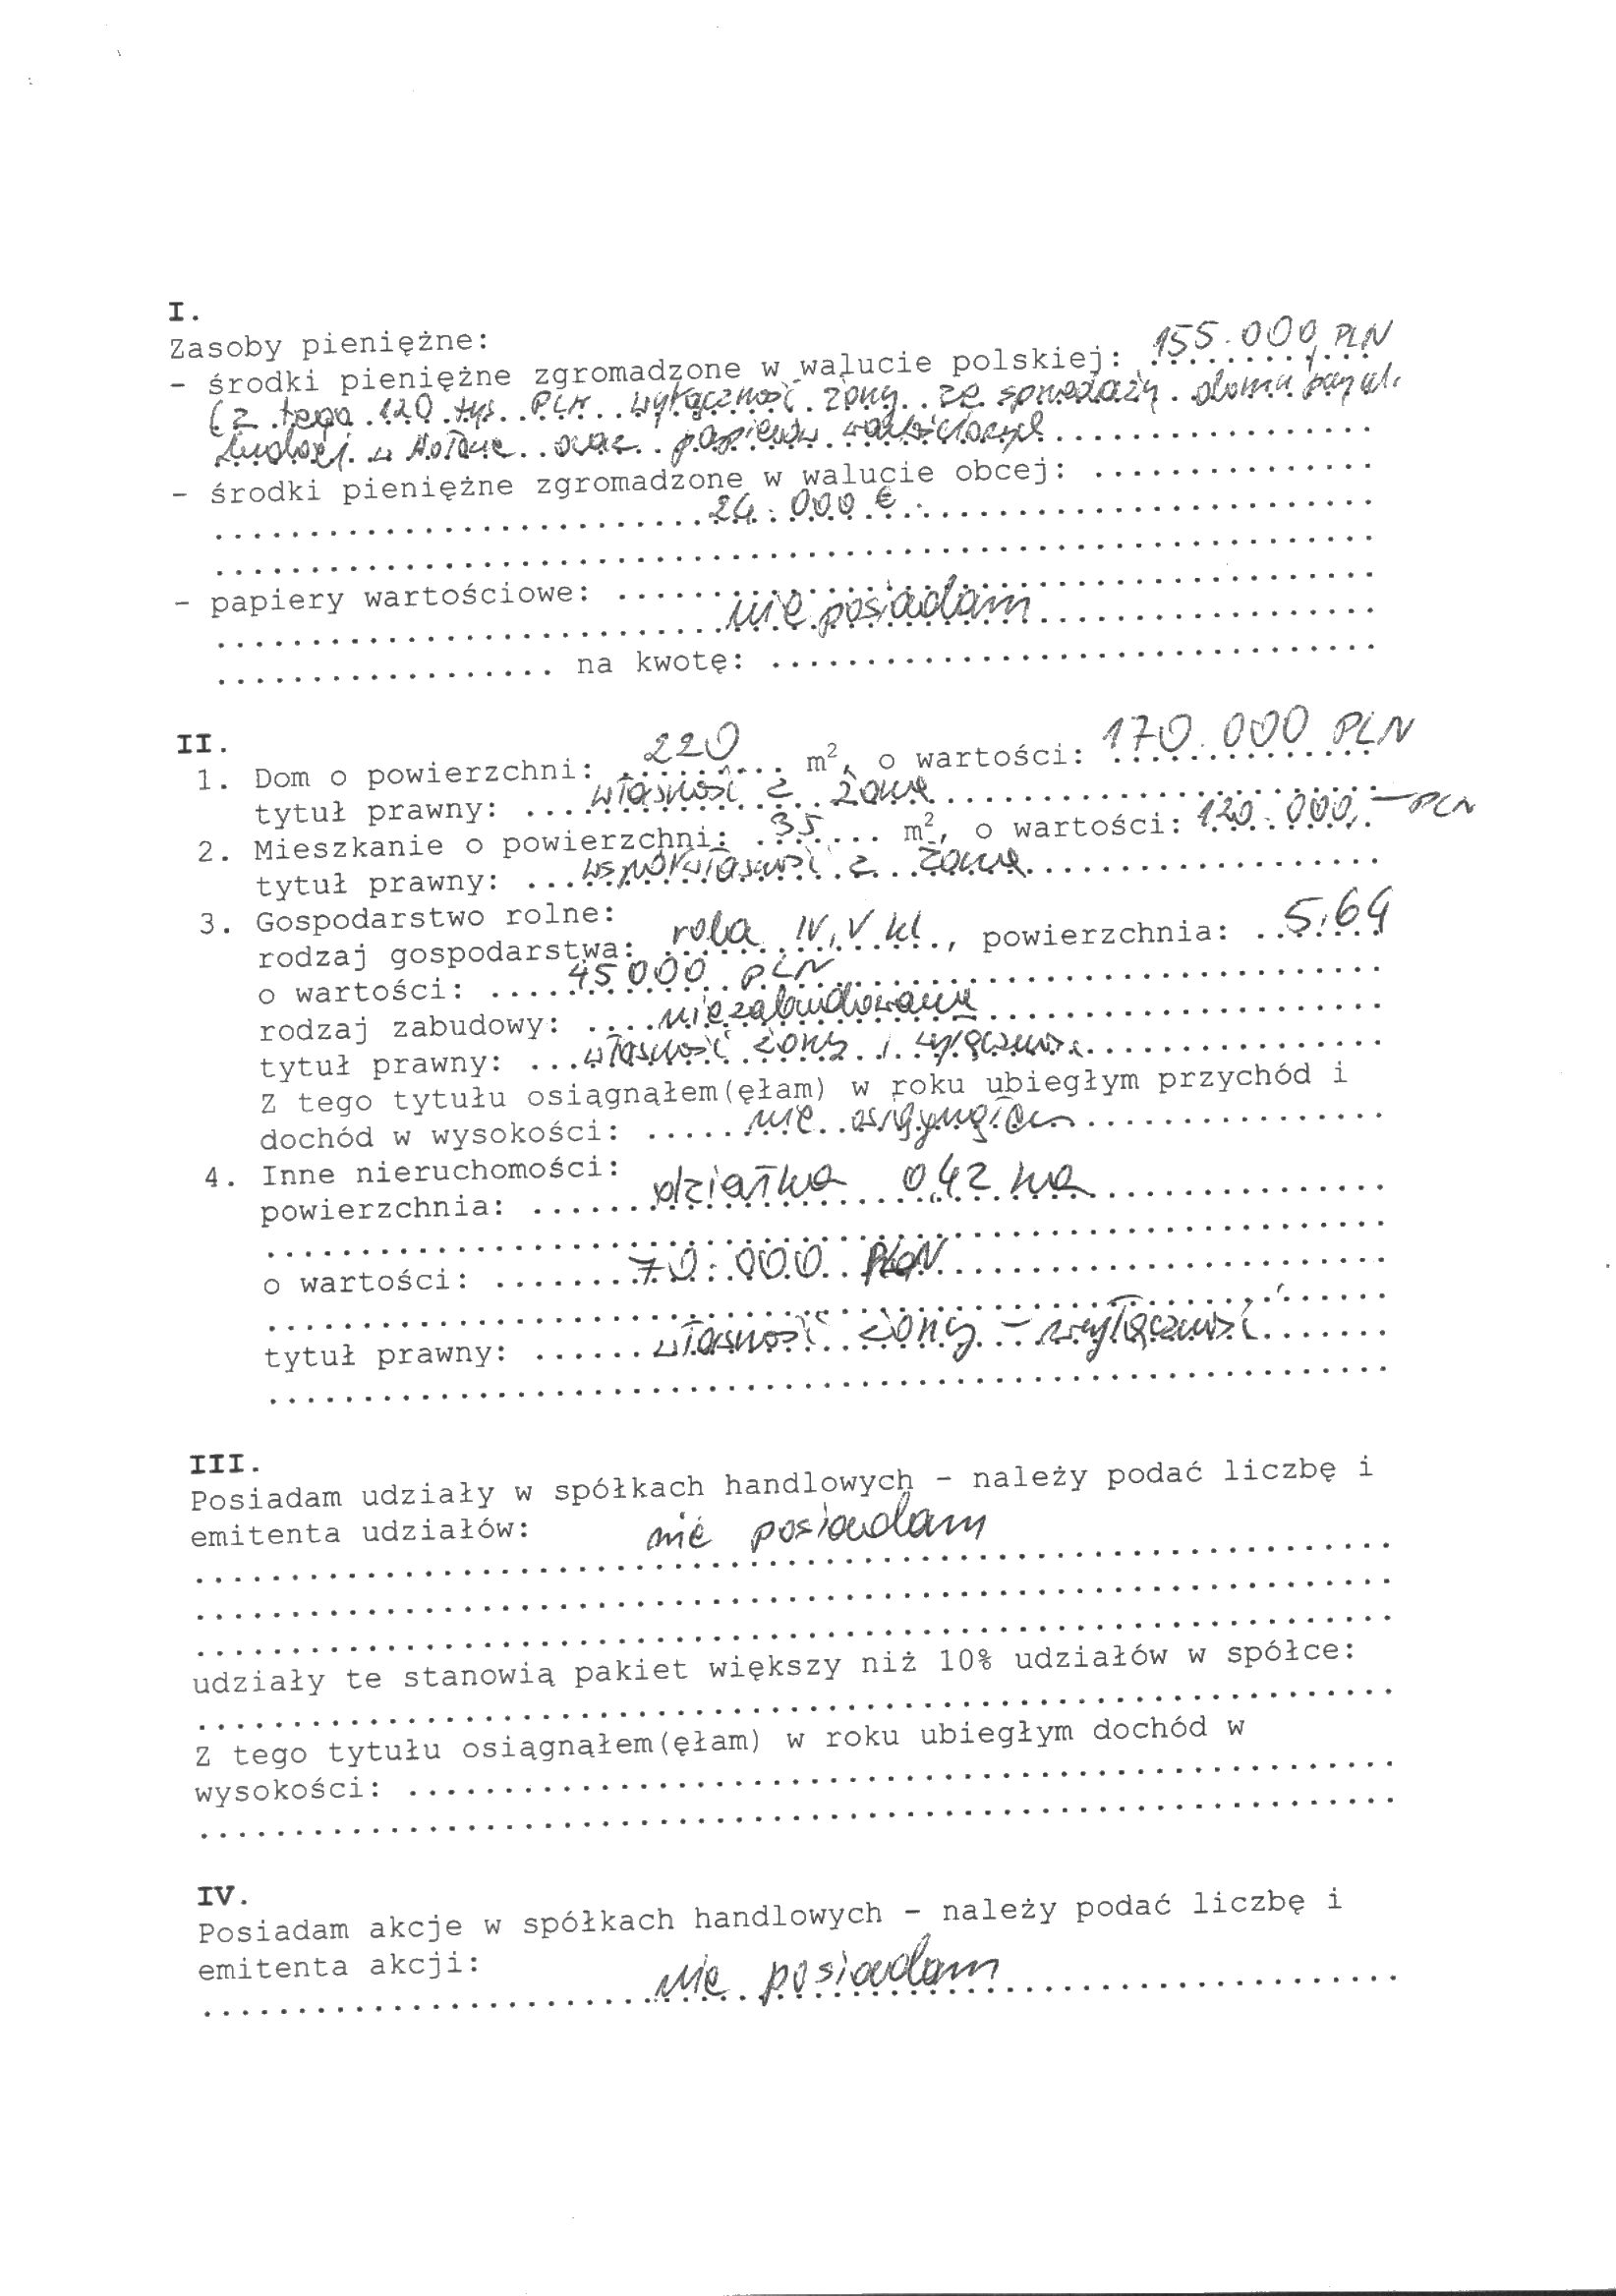 I.
Zasoby pieniężne:
- środki pieniężne zgromadzone w walucie polskiej: 155.000 PLN
(z tego 120 tys. PLN wyłączność żony ze sprzedaży domu przy ul.
oraz papierów wartościowych
- środki pieniężne zgromadzone w walucie obcej: ...............
24.000 €
- papiery wartościowe: nie posiadam
.................. na kwotę: ................................
II.
1. Dom o powierzchni: 220 m², o wartości: 170.000 PLN
tytuł prawny: własność z żoną
2. Mieszkanie o powierzchni: 35 m², o wartości: 120.000,- PLN
tytuł prawny: współwłasność z żoną
3. Gospodarstwo rolne:
rodzaj gospodarstwa: rola IV, V kl., powierzchnia: 5,64
o wartości: 45000 PLN
rodzaj zabudowy: niezabudowane
tytuł prawny: własność żony i wyłączna
Z tego tytułu osiągnąłem(ęłam) w roku ubiegłym przychód i
dochód w wysokości: nie osiągnąłem
4. Inne nieruchomości:
powierzchnia: działka 0,42 ha
o wartości: 70.000 PLN
tytuł prawny: własność żony - wyłączność
III.
Posiadam udziały w spółkach handlowych - należy podać liczbę i
emitenta udziałów: nie posiadam
udziały te stanowią pakiet większy niż 10% udziałów w spółce:
Z tego tytułu osiągnąłem(ęłam) w roku ubiegłym dochód w
wysokości: ....................................................
IV.
Posiadam akcje w spółkach handlowych - należy podać liczbę i
emitenta akcji: nie posiadam